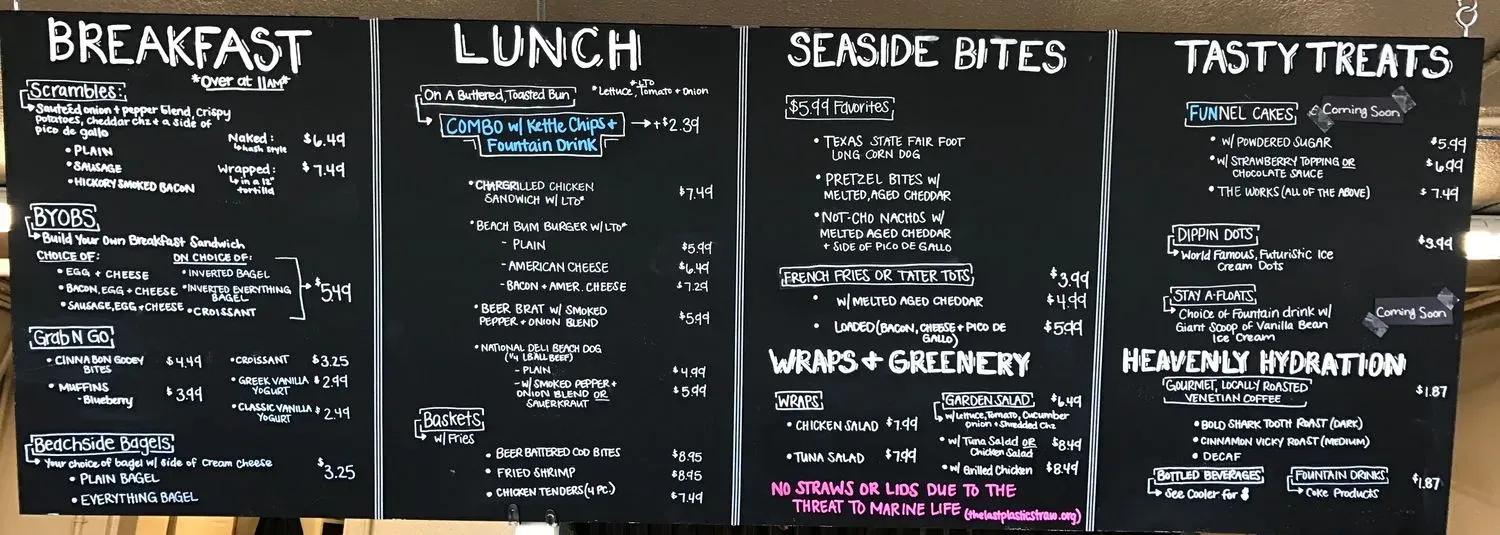 BREAKFAST
*Over at 11AM*
Scrambles:
Sauteéd onion + pepper blend, crispy
potatoes, cheddar chz + a side of
pico de gallo
• PLAIN
• SAUSAGE
• HICKORY SMOKED BACON
Naked: $6.49
hash style
Wrapped: $7.49
in a 12"
tortilla
BYOBS
Build Your Own Breakfast Sandwich
CHOICE OF:
• EGG + CHEESE
• BACON, EGG + CHEESE
• SAUSAGE, EGG + CHEESE
ON CHOICE OF:
• INVERTED BAGEL
• INVERTED EVERYTHING
BAGEL
• CROISSANT
$5.49
Grab N GO
• CINNABON GOOEY $4.49
BITES
• MUFFINS $3.99
- Blueberry
• CROISSANT $3.25
• GREEK VANILLA $2.99
YOGURT
• CLASSIC VANILLA $2.49
YOGURT
Beachside Bagels
Your choice of bagel w/ side of Cream Cheese $3.25
• PLAIN BAGEL
• EVERYTHING BAGEL
LUNCH
On A Buttered, Toasted Bun
*LTO
*Lettuce, Tomato + Onion
COMBO w/ Kettle Chips + → +$2.39
Fountain Drink
• CHARGRILLED CHICKEN
SANDWICH W/ LTO* $7.49
• BEACH BUM BURGER W/ LTO*
- PLAIN $5.99
- AMERICAN CHEESE $6.49
- BACON + AMER. CHEESE $7.29
• BEER BRAT W/ SMOKED
PEPPER + ONION BLEND $5.99
• NATIONAL DELI BEACH DOG
(1/4 LB ALL BEEF)
- PLAIN $4.99
- W/ SMOKED PEPPER + $5.99
ONION BLEND OR
SAUERKRAUT
Baskets
w/ Fries
• BEER BATTERED COD BITES $8.95
• FRIED SHRIMP $8.95
• CHICKEN TENDERS (4 PC.) $7.49
SEASIDE BITES
$5.99 Favorites
• TEXAS STATE FAIR FOOT
LONG CORN DOG
• PRETZEL BITES W/
MELTED, AGED CHEDDAR
• NOT-CHO NACHOS W/
MELTED AGED CHEDDAR
+ SIDE OF PICO DE GALLO
FRENCH FRIES OR TATER TOTS $3.99
• W/ MELTED AGED CHEDDAR $4.99
• LOADED (BACON, CHEESE + PICO DE $5.99
GALLO)
WRAPS + GREENERY
WRAPS
• CHICKEN SALAD $7.99
• TUNA SALAD $7.99
GARDEN SALAD $6.49
w/ Lettuce, Tomato, Cucumber
onion + Shredded Chz
• w/ Tuna Salad OR $8.49
Chicken Salad
• w/ Grilled Chicken $8.49
NO STRAWS OR LIDS DUE TO THE
THREAT TO MARINE LIFE (thelastplasticstraw.org)
TASTY TREATS
FUNNEL CAKES
Coming Soon
• W/ POWDERED SUGAR $5.99
• W/ STRAWBERRY TOPPING OR $6.99
CHOCOLATE SAUCE
• THE WORKS (ALL OF THE ABOVE) $7.49
DIPPIN DOTS $3.99
World Famous, Futuristic Ice
Cream Dots
STAY A-FLOATS
Coming Soon
Choice of Fountain drink w/
Giant Scoop of Vanilla Bean
Ice Cream
HEAVENLY HYDRATION
GOURMET, LOCALLY ROASTED $1.87
VENETIAN COFFEE
• BOLD SHARK TOOTH ROAST (DARK)
• CINNAMON VICKY ROAST (MEDIUM)
• DECAF
BOTTLED BEVERAGES
See Cooler for $
FOUNTAIN DRINKS $1.87
Coke Products